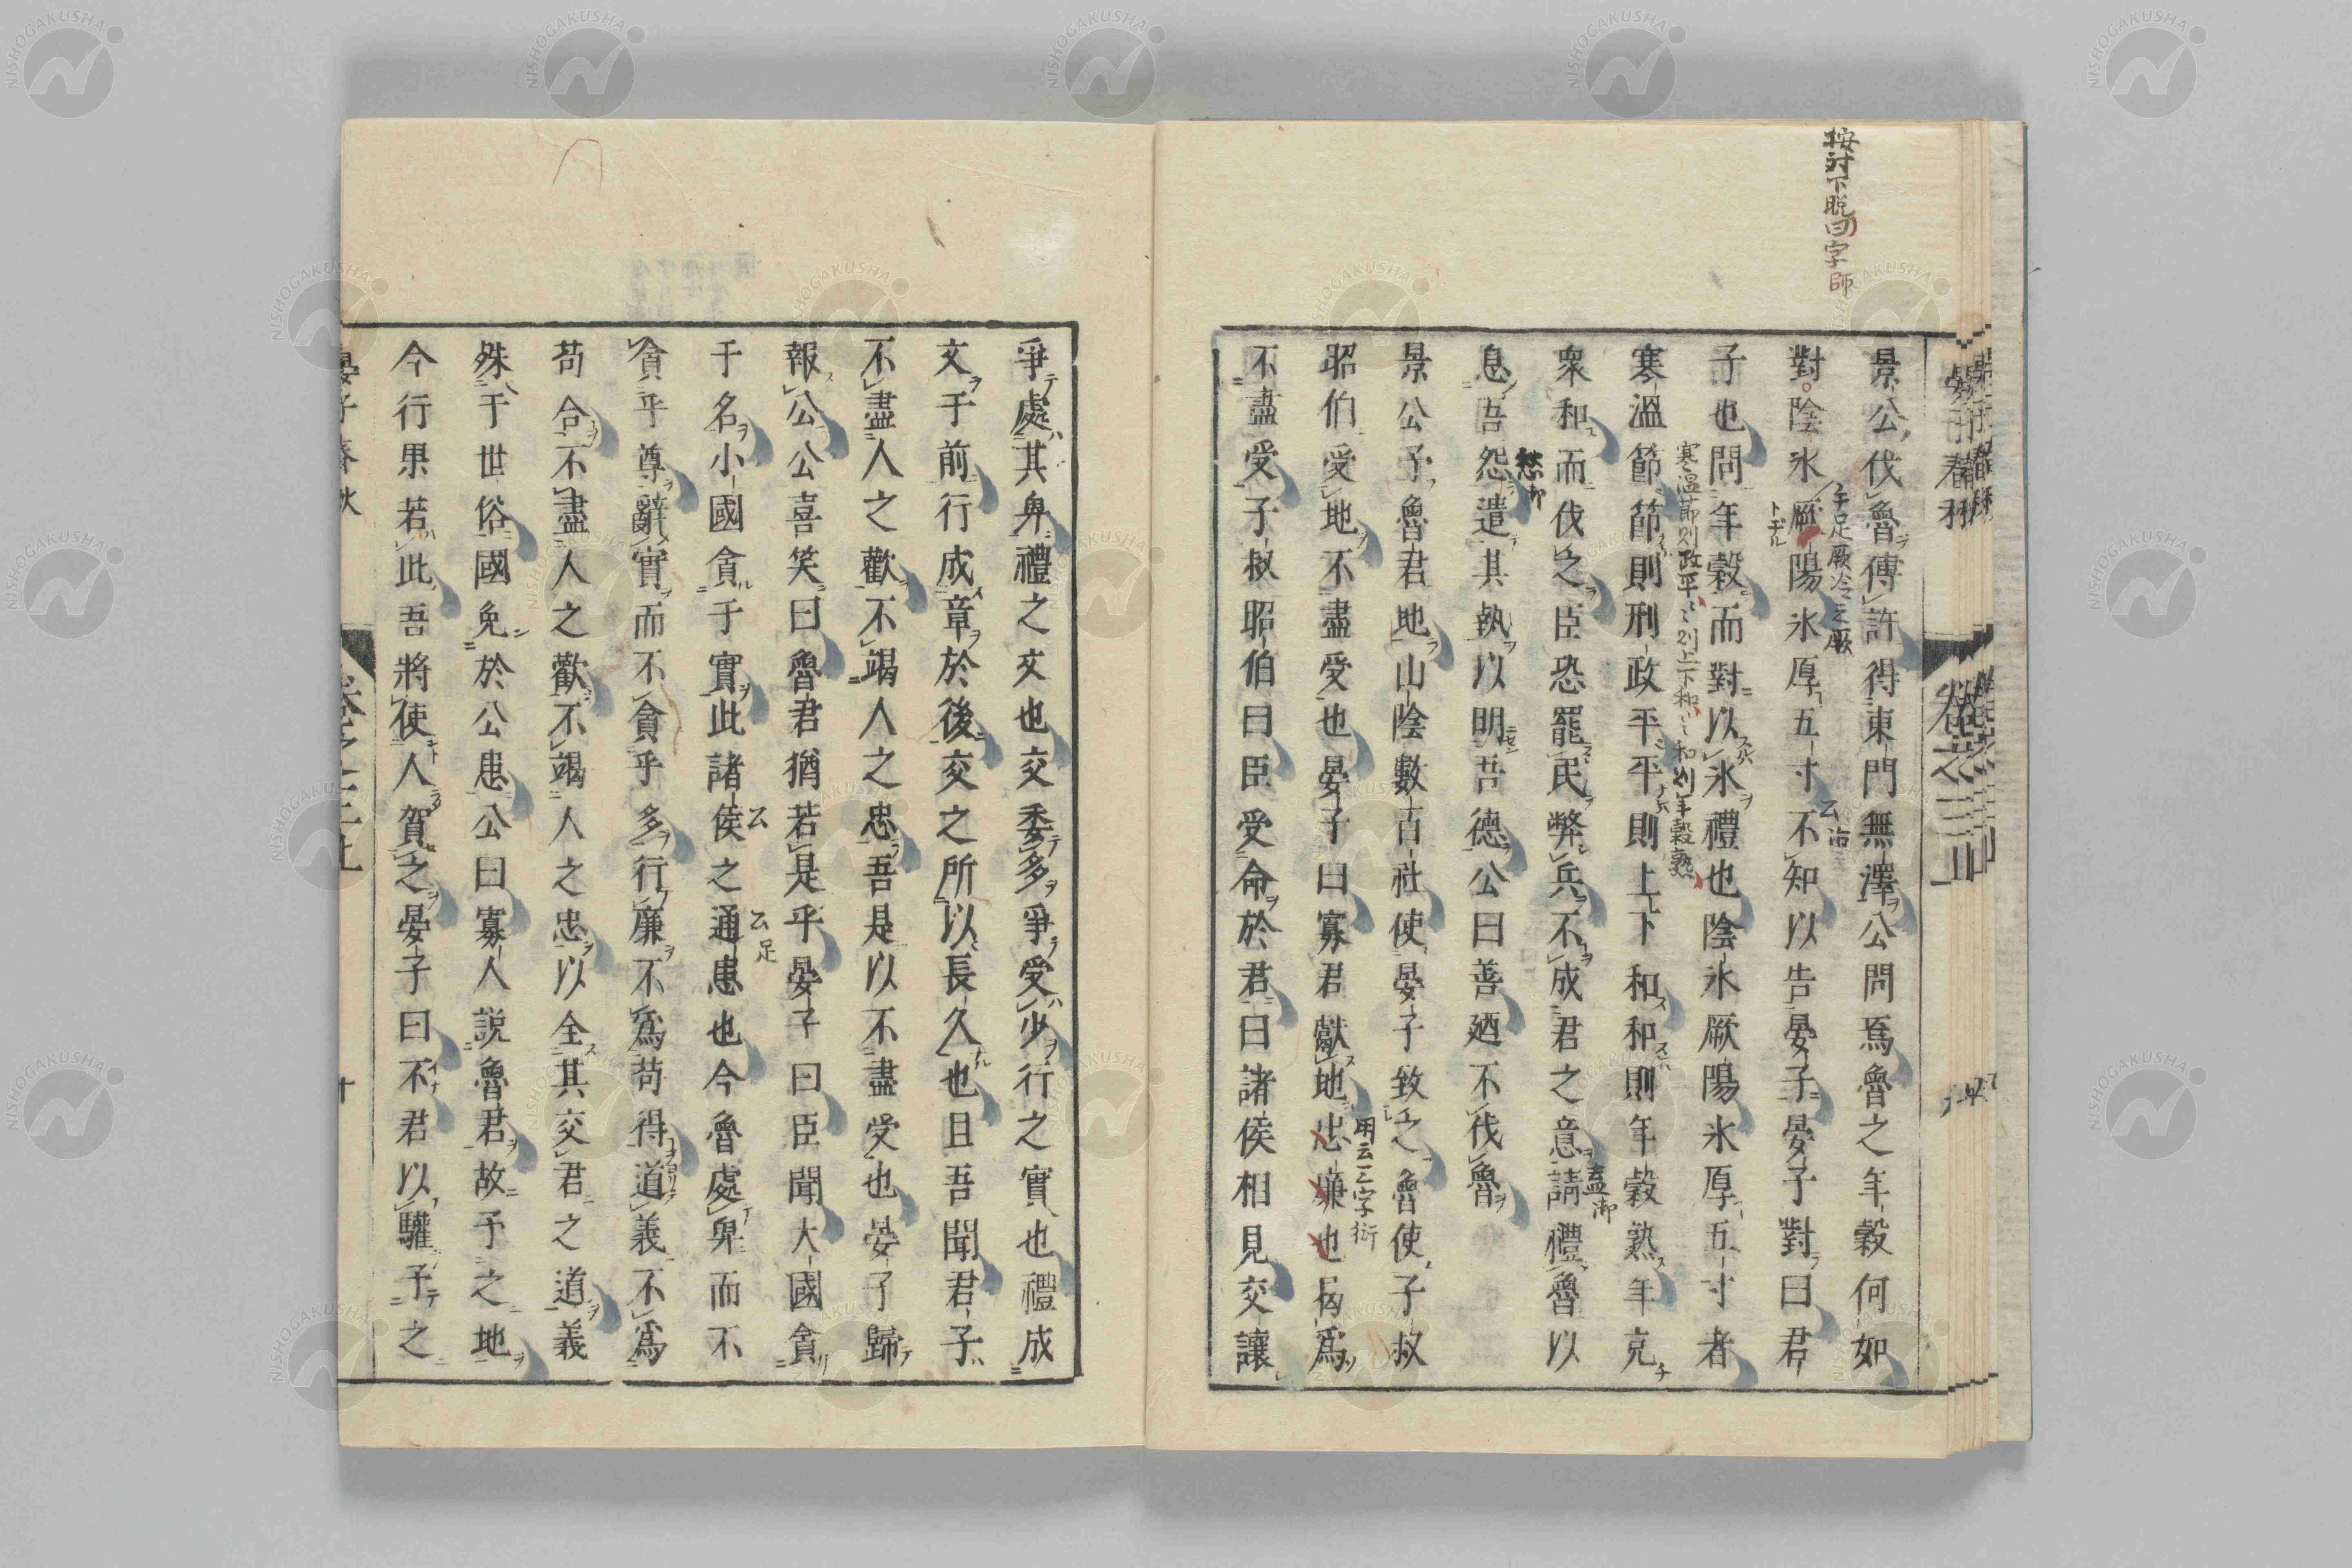 按対下脱曰字師
景公伐魯傅許得東門無澤公問焉魯之年穀何如
對陰氷厥陽氷厚五寸不知以告晏子晏子對曰君
子也問年穀而對以氷禮也陰氷厥陽氷厚五寸者
寒溫節節則刑政平平則上下和和則年穀熟年充
衆和而伐之臣恐罷民弊兵不成君之意請禮魯以
息吾怨遣其執以明吾德公曰善廼不伐魯
景公予魯君地山陰數百社使晏子致之魯使子叔
昭伯受地不盡受也晏子曰寡君獻地忠廉也曷爲
不盡受子叔昭伯曰臣受命於君曰諸侯相見交讓
爭處其卑禮之文也交委多爭受少行之實也禮成
文于前行成章於後交之所以長久也且吾聞君子
不盡人之歡不竭人之忠吾是以不盡受也晏子歸
報公公喜笑曰魯君猶若是乎晏子曰臣聞大國貪
于名小國貪于實此諸侯之通患也今魯處卑而不
貪乎尊辭實而不貪乎多行廉不爲苟得道義不爲
苟合不盡人之歡不竭人之忠以全其交君之道義
殊于世俗國免於公患公曰寡人説魯君故予之地
今行果若此吾將使人賀之晏子曰不君以驩予之
晏子春秋
卷之三
十